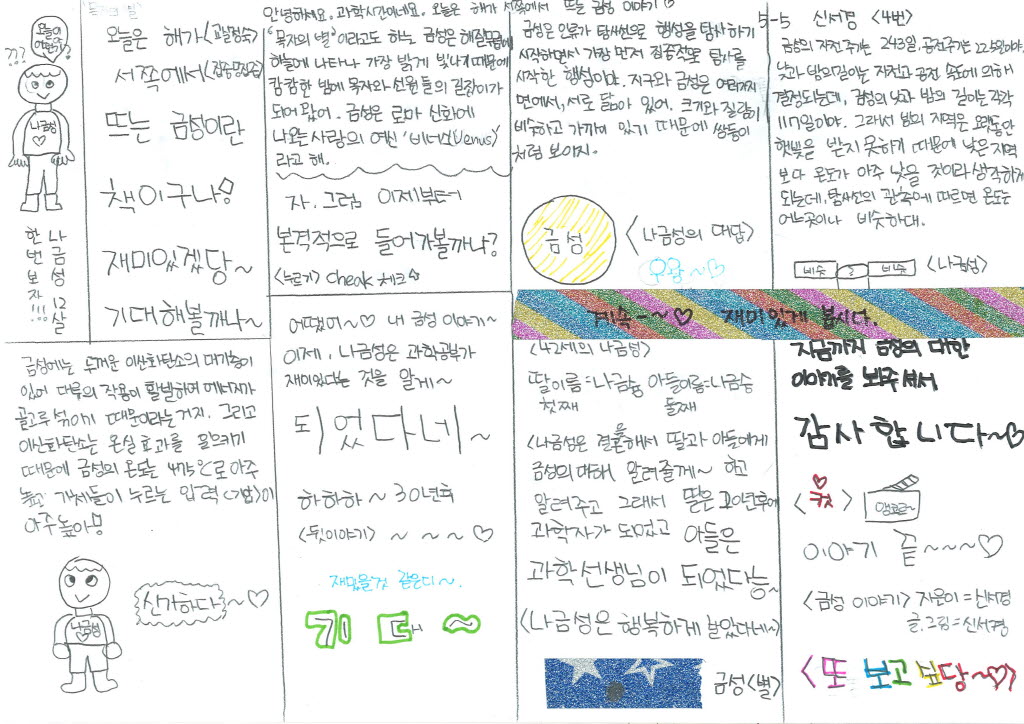 5-5 신서경 <4번>
오늘의
???
나금성
한번 보자!!!
나금성 12살
오늘은 해가
서쪽에서
뜨는 금성이란
책이구나!
재미있겠당~
기대해볼까나~
안녕하세요. 과학시간이네요. 오늘은 해가 서쪽에서 뜨는 금성 이야기♡
'목자의 별'이라고도 하는 금성은 해질무렵에
하늘에 나타나 가장 밝게 빛나기 때문에
캄캄한 밤에 목자와 선원들의 길잡이가
되어 왔어. 금성은 로마 신화에
나오는 사랑의 여신 '비너스(Venus)'
라고 해.
자. 그럼 이제부터
본격적으로 들어가볼까나?
<누르기> Cheak 체크
금성은 인류가 탐사선으로 행성을 탐사하기
시작하면서 가장 먼저 집중적으로 탐사를
시작한 행성이야. 지구와 금성은 여러가지
면에서, 서로 닮아 있어. 크기와 질량이
비슷하고 가까이 있기 때문에 쌍둥이
처럼 보이지.
금성
<나금성의 대답>
우왕~♡
금성의 자전주기는 243일, 공전주기는 225일이야.
낮과 밤의 길이는 자전과 공전 속도에 의해
결정되는데, 금성의 낮과 밤의 길이는 각각
117일이야. 그래서 밤의 지역은 오랫동안
햇빛을 받지 못하기 때문에 낮은 지역
보다 온도가 아주 낮을 것이라 생각하게
되는데, 탐사선의 관측에 따르면 온도는
어느곳이나 비슷하대.
비슷 비슷 <나금성>
금성에는 두꺼운 이산화탄소의 대기층이
있어 대류의 작용이 활발하여 에너지가
골고루 섞이기 때문이라는거지. 그리고
이산화탄소는 온실 효과를 일으키기
때문에 금성의 온도는 475°으로 아주
높고 기체들이 누르는 압력<기압>이
아주 높아!
나금성
신기하다~♡
어땠어~♡ 내 금성 이야기~
이제, 나금성은 과학공부가
재미있다는 것을 알게~
되었다네~
하하하~30년후
<뒷이야기>~~~♡
재밌을것 같은디~.
기대~
계속~~♡ 재미있게 봅시다.
<42세의 나금성>
딸이름=나금슝 아들이름=나금숭
첫째 둘째
<나금성은 결혼을해서 딸과 아들에게
금성의 대해, 알려줄게~ 하고
알려주고 그래서 딸은 20년후에
과학자가 되었고 아들은
과학선생님이 되었다능~
<나금성은 행복하게 살았다네~>
금성<별>
지금까지 금성의 대한
이야기를 봐주셔서
감사합니다~♡
<컷> 앵코르~
이야기 끝~~~♡
<금성 이야기> 지은이=신서경
글.그림=신서경
<또 보고 싶당~♡>